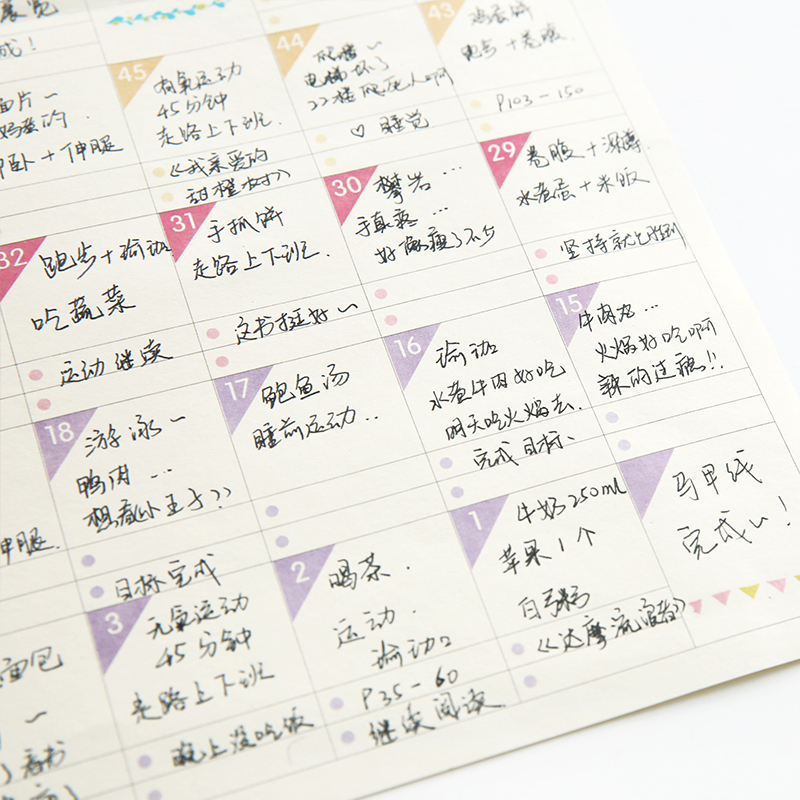 成！
45
有氧运动
45分钟
走路上下班
《我亲爱的
甜橙树》
44
爬楼～
电梯坏了
22楼爬死人啊
♡ 睡觉
43
鸡蛋饼
跑步＋卷腹
P103－150
面片～
＋伸腿
32
跑步＋瑜珈
吃蔬菜
运动继续
31
手抓饼
走路上下班
这书挺好～
30
攀岩…
手真疼…
29
卷腹＋深蹲
水煮蛋＋米饭
坚持就是胜利
18
游泳～
鸭肉…
目标完成
17
鲍鱼汤
睡前运动..
16
瑜珈
水煮牛肉好吃
明天吃火锅去.
完成目标、
15
牛肉丸…
火锅好吃啊
辣的过瘾!!
伸腿
3
有氧运动
45分钟
走路上下班
晚上没吃饭
2
喝茶.
运动.
P35－60
继续阅读
1
牛奶250ml
苹果1个
白粥
《达摩流浪者》
马甲线
完成～！
面包
～